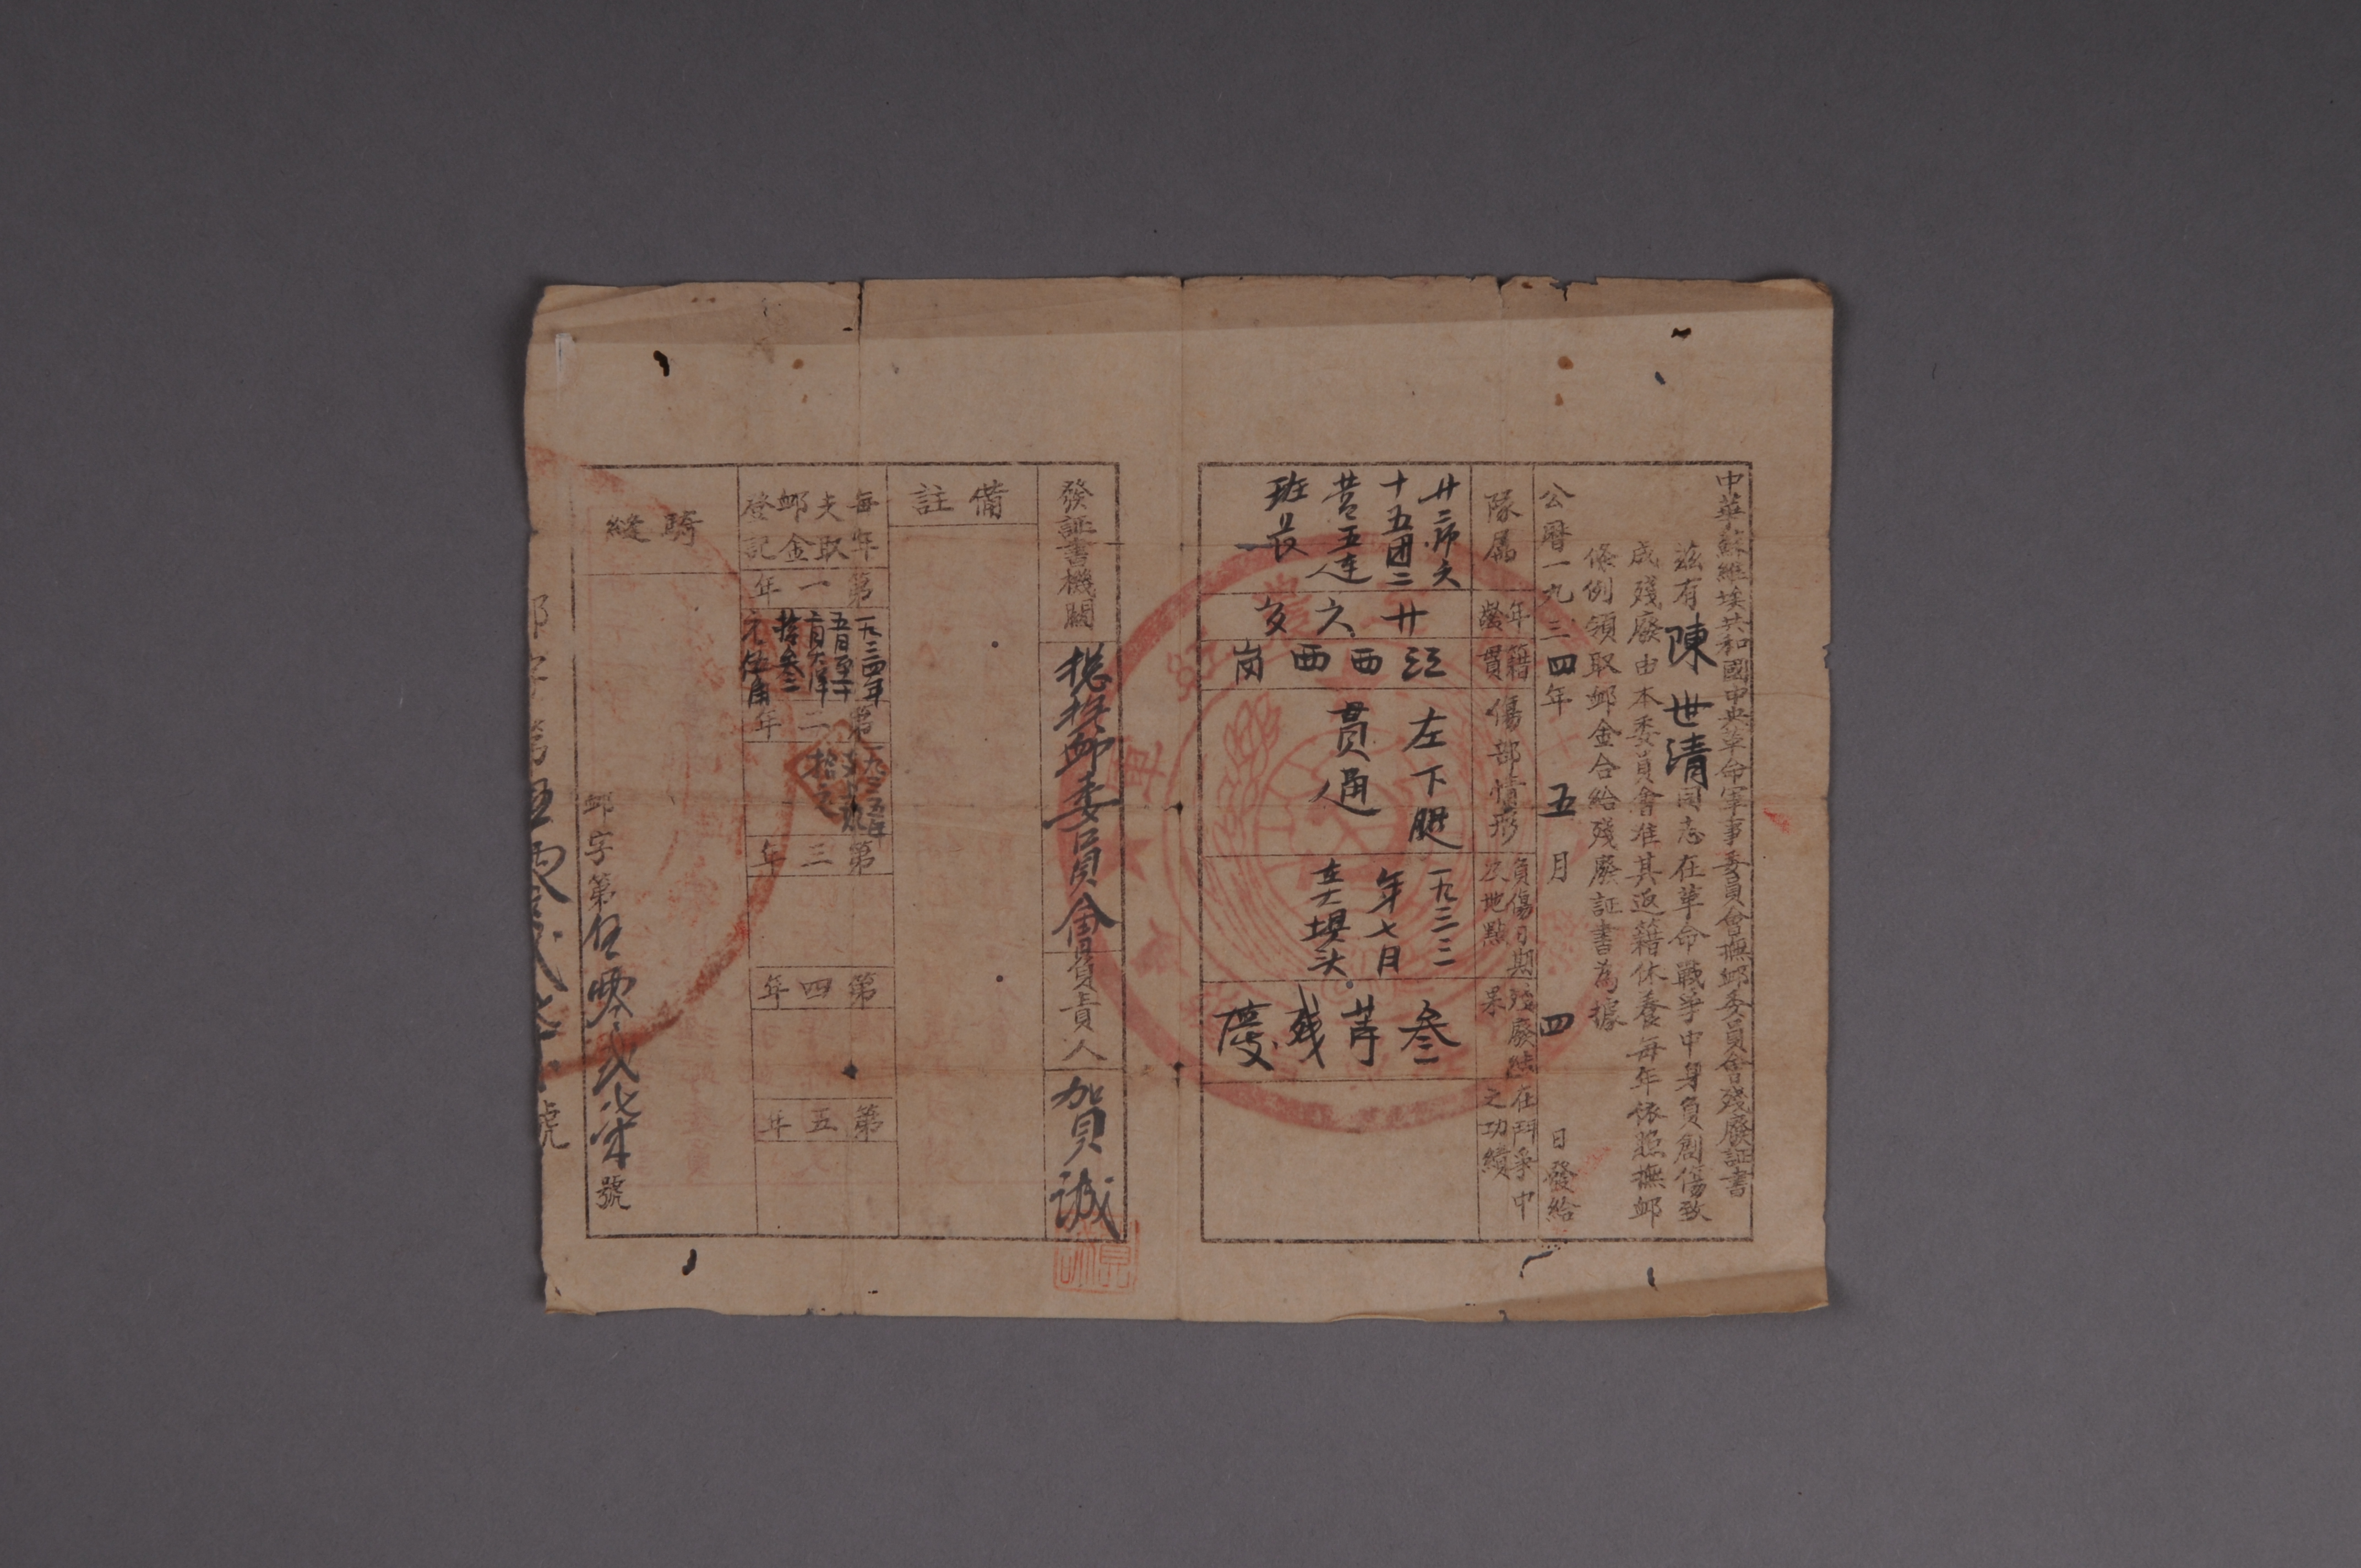 中華蘇維埃共和國中央革命軍事委員會撫卹委員會殘廢証書
茲有陳世清同志在革命戰爭中身負創傷致
成殘廢由本委員會准其返籍休養每年依照撫卹
條例領取卹金合給殘廢証書為據
公曆一九三四年五月四日發給
隊属
廿二师六
十五团二
营五连
班長
年齡
廿六岁
籍貫
江西西岗
傷部情形
左下腿
贯通
負傷日期
及地點
一九三三
年七月
坝头
殘廢結
果
叁等残废
在鬥爭中
之功績
發証書機關
总抚卹委員会
負責人
賀誠
備註
每年
支取
卹金
登記
第一年
一九三四年
五月至十
拾叁
元伍角
第二年
一九三五年
拾元
第三年
第四年
第五年
騎縫
卹字第伍零弍柒號